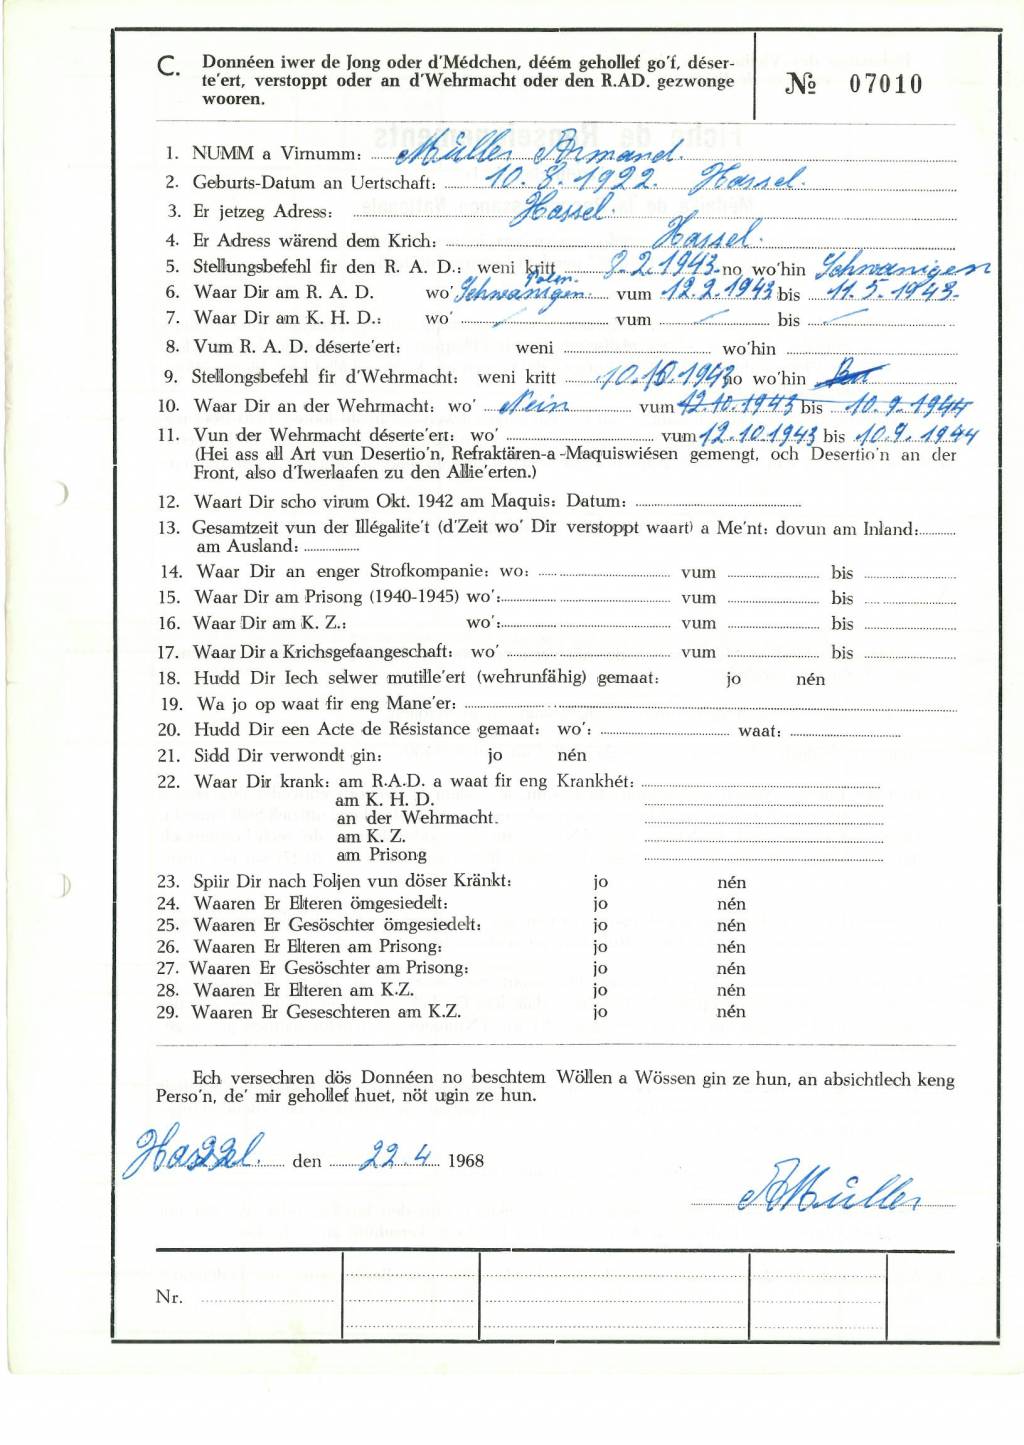 C. Donnéen iwer de Jong oder d'Médchen, déém gehollef go'f, déser-
te'ert, verstoppt oder an d'Wehrmacht oder den R.AD. gezwonge
wooren.
№ 07010
1. NUMM a Virnumm: Müller Armand.
2. Geburts-Datum an Uertschaft: 10. 8. 1922. Hassel.
3. Er jetzeg Adress: Hassel.
4. Er Adress wärend dem Krich: Hassel.
5. Stellungsbefehl fir den R. A. D.: weni kritt 8.2.1943 no wo'hin Schwanigen
6. Waar Dir am R. A. D. wo' Schwanigen Polen. vum 12.2.1943 bis 11.5.1943.
7. Waar Dir am K. H. D.: wo' / vum / bis /
8. Vum R. A. D. déserte'ert: weni wo'hin
9. Stellongsbefehl fir d'Wehrmacht: weni kritt 10.10.1943 no wo'hin
10. Waar Dir an der Wehrmacht: wo' Nein vum 12.10.1943 bis 10.9.1944
11. Vun der Wehrmacht déserte'ert: wo' vum 12.10.1943 bis 10.9.1944
(Hei ass all Art vun Desertio'n, Refraktären-a-Maquiswiésen gemengt, och Desertio'n an der
Front, also d'Iwerlaafen zu den Allie'erten.)
12. Waart Dir scho virum Okt. 1942 am Maquis: Datum:
13. Gesamtzeit vun der Illégalite't (d'Zeit wo' Dir verstoppt waart) a Me'nt: dovun am Inland:
am Ausland:
14. Waar Dir an enger Strofkompanie: wo: vum bis
15. Waar Dir am Prisong (1940-1945) wo': vum bis
16. Waar Dir am K. Z.: wo': vum bis
17. Waar Dir a Krichsgefaangeschaft: wo' vum bis
18. Hudd Dir Iech selwer mutille'ert (wehrunfähig) gemaat: jo nén
19. Wa jo op waat fir eng Mane'er:
20. Hudd Dir een Acte de Résistance gemaat: wo': waat:
21. Sidd Dir verwondt gin: jo nén
22. Waar Dir krank: am R.A.D. a waat fir eng Krankhét:
am K. H. D.
an der Wehrmacht.
am K. Z.
am Prisong
23. Spiir Dir nach Foljen vun döser Kränkt: jo nén
24. Waaren Er Elteren ömgesiedelt: jo nén
25. Waaren Er Gesöschter ömgesiedelt: jo nén
26. Waaren Er Elteren am Prisong: jo nén
27. Waaren Er Gesöschter am Prisong: jo nén
28. Waaren Er Elteren am K.Z. jo nén
29. Waaren Er Geseschteren am K.Z. jo nén
Ech versechren dös Donnéen no beschtem Wöllen a Wössen gin ze hun, an absichtlech keng
Perso'n, de' mir gehollef huet, nöt ugin ze hun.
Hassel. den 22.4 1968
A Müller
Nr.